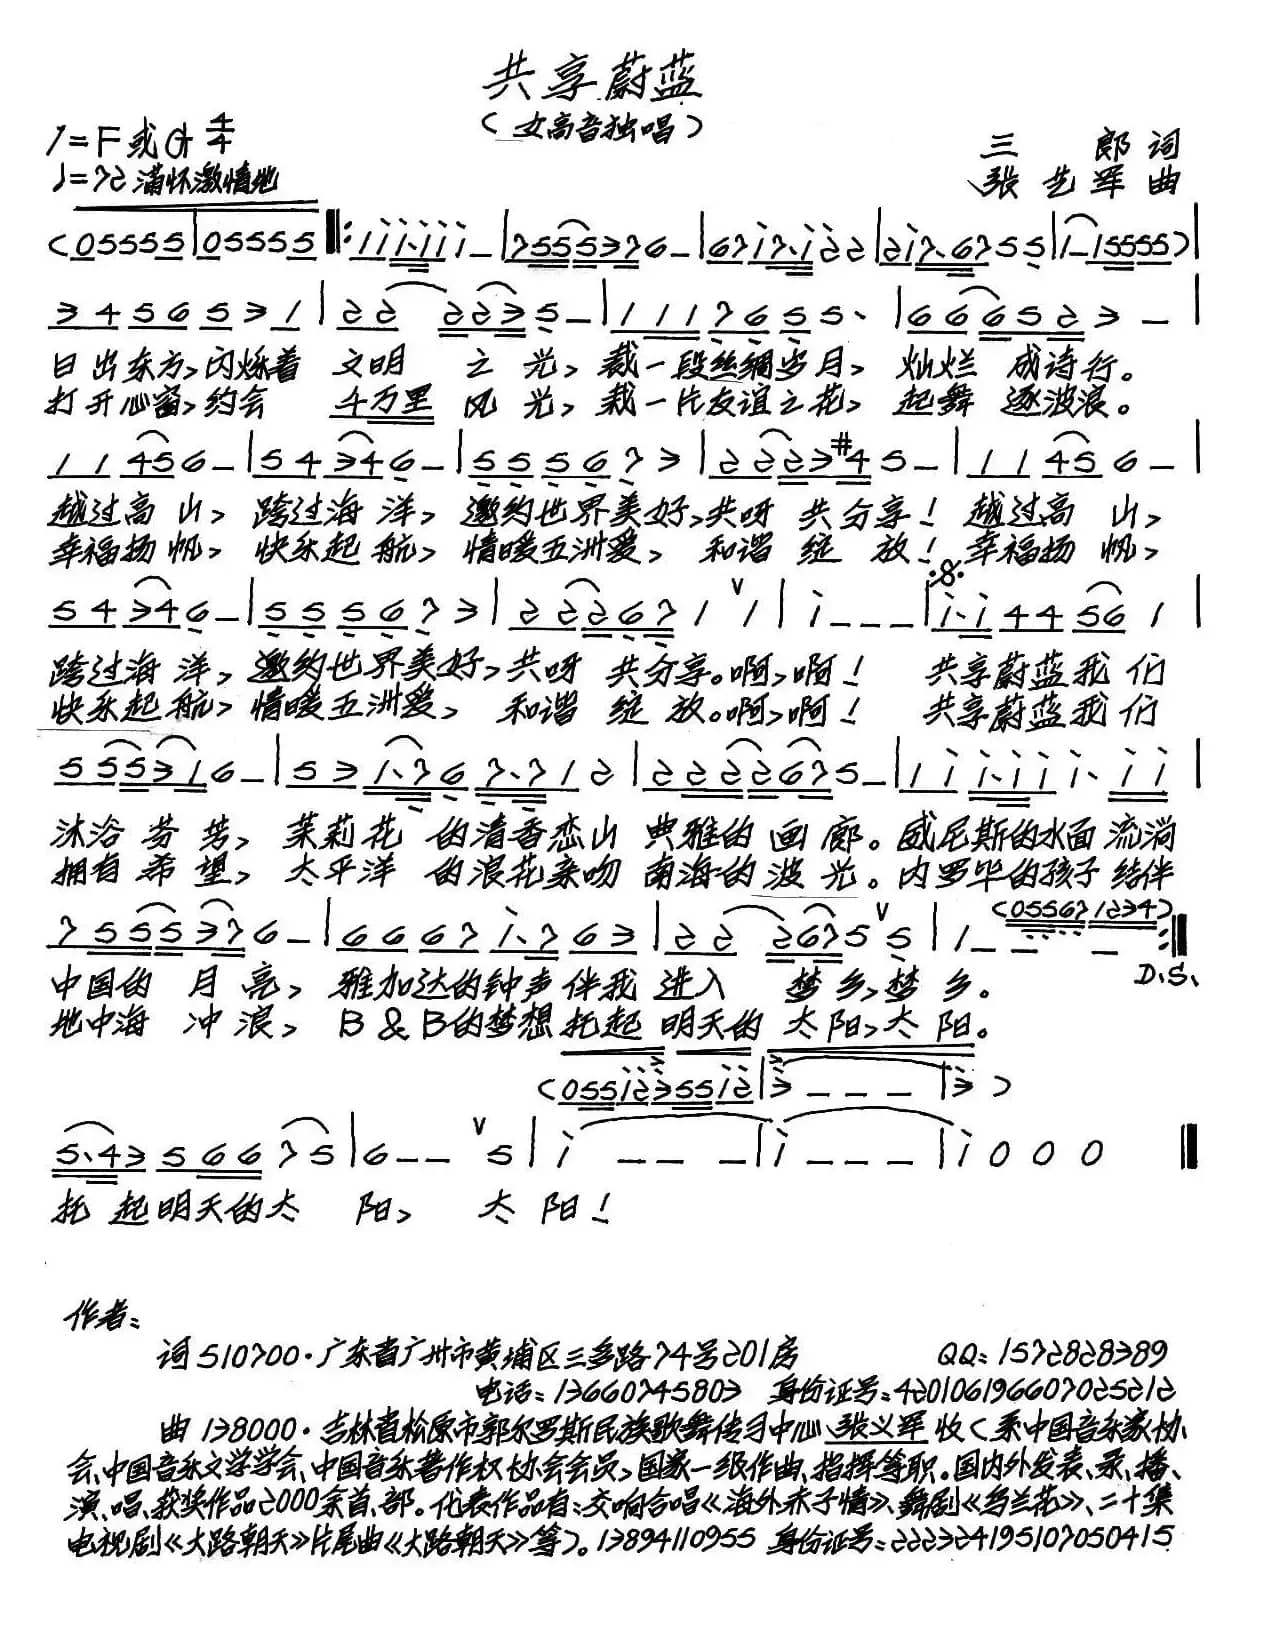 共享蔚蓝
(女高音独唱)
1=F或G 4/4
♩=72 满怀激情地
三 郎 词
张艺军 曲
(05555 | 05555 ‖: 11·111 – | 7555376 – | 6717·122 | 217·6755 | 1 – 15555) |
3456531 | 22 2235 – | 1117655· | 666523 – |
日出东方,闪烁着 文明 之 光, 裁一段丝绸岁月, 灿烂 成诗行。
打开心窗,约会 千万里 风 光, 栽一片友谊之花, 起舞 逐波浪。
11456 – | 54346 – | 555673 | 2223#45 – | 11456 – |
越过高 山, 跨过海 洋, 邀约世界美好,共呀 共分享! 越过高 山,
幸福扬 帆, 快乐起 航, 情暖五洲爱, 和谐 绽 放! 幸福扬 帆,
54346 – | 555673 | 222671 ∨ 1 | 1 – – – | 1·144561 |
跨过海 洋, 邀约世界美好,共呀 共分享。啊,啊! 共享蔚蓝我们
快乐起 航, 情暖五洲爱, 和谐 绽 放。啊,啊! 共享蔚蓝我们
555316 – | 531·767·712 | 2222675 – | 111·111·11 |
沐浴 芬 芳, 茉莉花 的清香恋山 典雅的 画 廊。威尼斯的水面流淌
拥有 希 望, 太平洋 的浪花亲吻 南海的 波 光。内罗毕的孩子结伴
7555376 – | 66671·763 | 22 2675 ∨ 5 | 1 – – – (055671234) :‖
D.S.
中国的 月 亮, 雅加达的钟声伴我 进入 梦乡,梦 乡。
地中海 冲 浪, B&B的梦想托起 明天的 太阳,太 阳。
(0551235512 | 3 – – – | 3)
5·4356675 | 6 – – ∨ 5 | 1 – – – | 1 – – – | 1 0 0 0 ‖
托 起明天的太 阳, 太 阳!
作者:
词510700·广东省广州市黄埔区三多路74号201房 QQ:1572828389
电话:13660745803 身份证号:420106196607025212
曲138000·吉林省松原市郭尔罗斯民族歌舞传习中心、张义军 收(系中国音乐家协
会、中国音乐文学学会、中国音乐著作权协会会员,国家一级作曲、指挥等职。国内外发表、录、播、
演、唱、获奖作品2000余首、部。代表作品有:交响合唱《海外赤子情》、舞剧《乌兰花》、二十集
电视剧《大路朝天》片尾曲《大路朝天》等)。13894110955 身份证号:222324195107050415